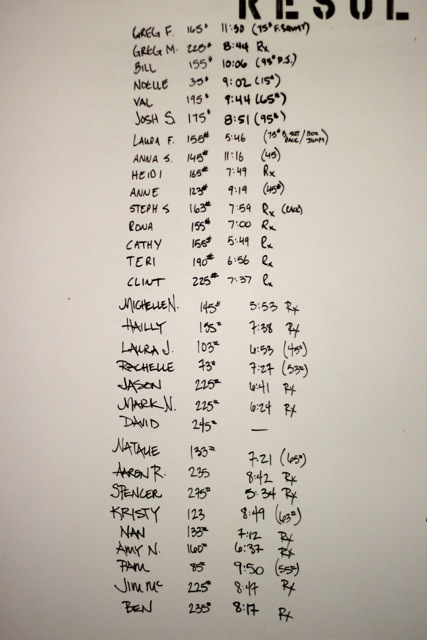 RESUL
GREG F. 165# 11:50 (75# F.SQUAT)
GREG M. 225# 8:44 Rx
BILL 155# 10:06 (95# P.J.)
NOELLE 35# 9:02 (15#)
VAL 195# 9:44 (65#)
JOSH S. 175# 8:51 (95#)
LAURA F. 155# 5:46 (75#
ANNA S. 145# 11:16 (45)
HEIDI 165# 7:49 Rx
ANNE 123# 9:19 (45#)
STEPH S 163# 7:59 Rx
RONA 155# 7:00 Rx
CATHY 155# 5:49 Rx
TERI 190# 6:56 Rx
CLINT 225# 7:37 Rx
MICHELLE N. 145# 5:53 Rx
HAILLY 155# 7:38 Rx
LAURA J. 103# 6:53 (45#)
RACHELLE 73# 7:27 (53#)
JASON 225# 6:41 Rx
MARK N. 225# 6:24 Rx
DAVID 245# —
NATALIE 133# 7:21 (65#)
AARON R. 235 8:42 Rx
SPENCER 275# 5:34 Rx
KRISTY 123 8:49 (63#)
NAN 133# 7:12 Rx
AMY N. 160# 6:37 Rx
PAM 85# 9:50 (55#)
JIM MC 225# 8:47 Rx
BEN 235# 8:17 Rx